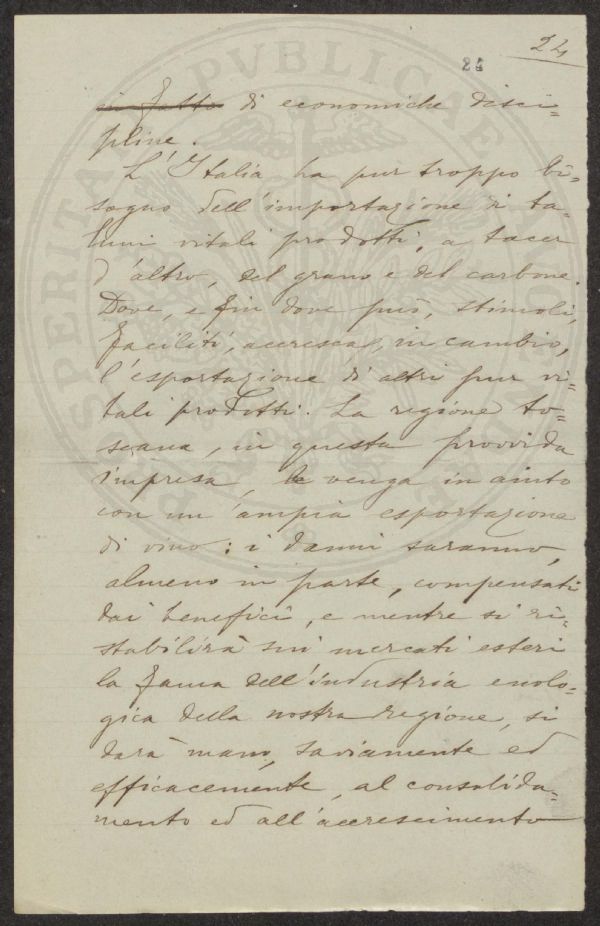 24
24
in fatto di economiche disci-
pline.
L'Italia ha pur troppo bi-
sogno dell'importazione di ta-
luni vitali prodotti, a tacer
d'altro, del grano e del carbone.
Dove, e fin dove può, stimoli,
faciliti, accresca, in cambio,
l'esportazione di altri pur vi-
tali prodotti. La regione to-
scana, in questa provvida
impresa, le venga in aiuto
con un'ampia esportazione
di vino: i danni saranno,
almeno in parte, compensati
dai beneficî, e mentre si ri-
stabilirà sui mercati esteri
la fama dell'industria enolo-
gica della nostra regione, si
darà mano, saviamente ed
efficacemente, al consolida-
mento ed all'accrescimento